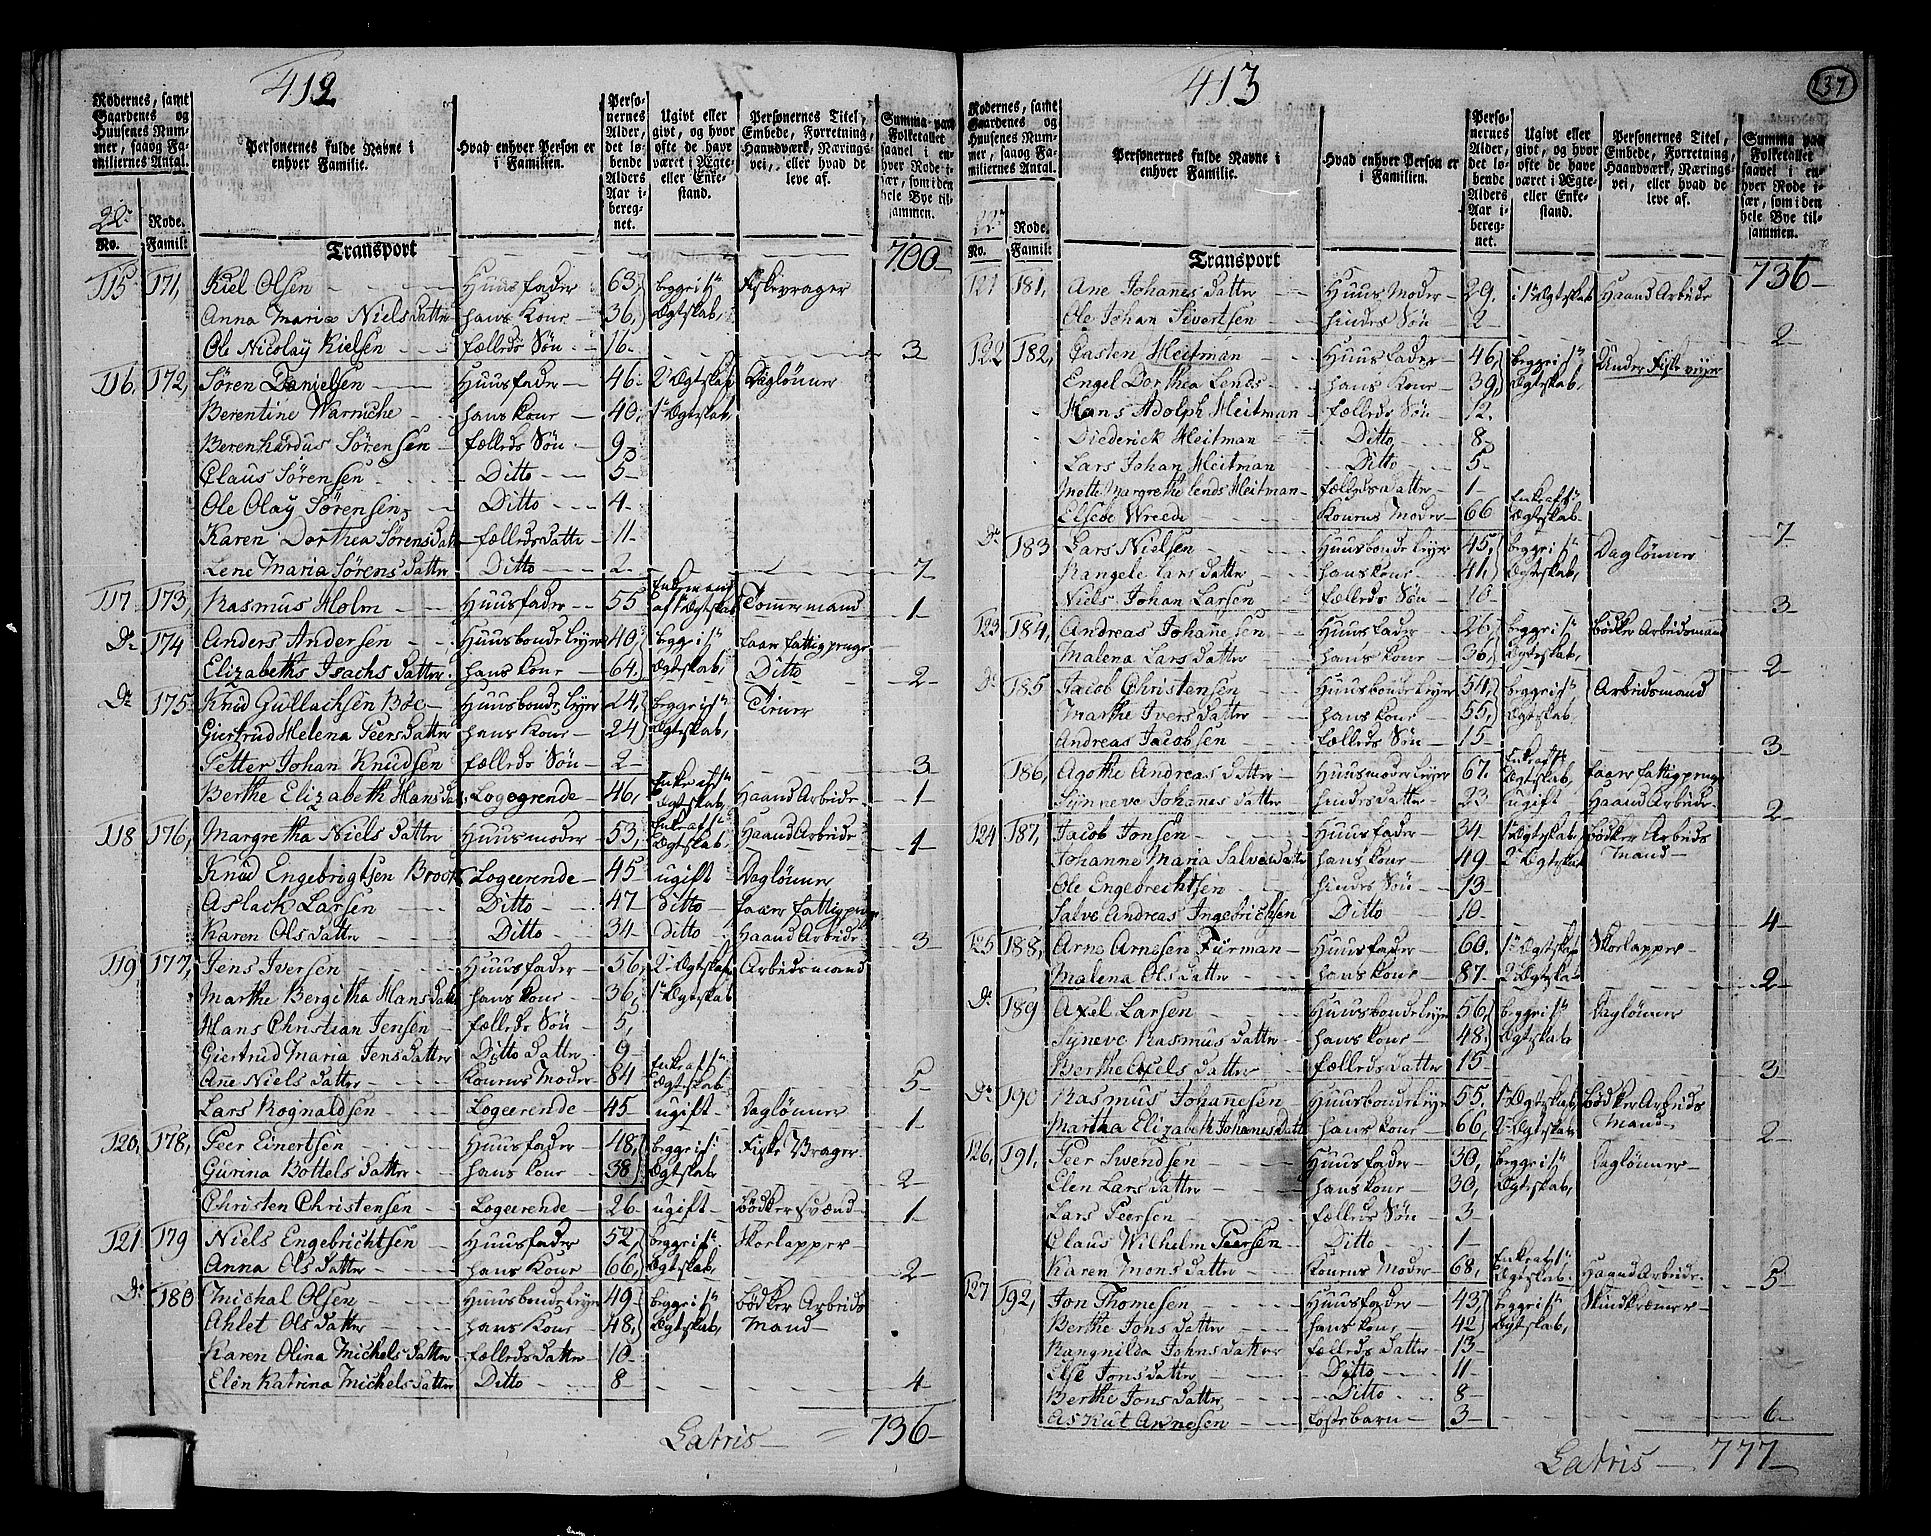 412
Rodernes, samt Gaardenes og Huusenes Nummer, saaog Familiernes Antal.
Personernes fulde Navne i enhver Familie.
Hvad enhver Person er i Familien.
Personernes Alder, det løbende Alders Aar iberegnet.
Ugivt eller givt, og hvor ofte de have været i Ægte- eller Enkestand.
Personernes Titel, Embede, Forretning, Haandværk, Næringsvei, eller hvad de leve af.
Summa paa Folketallet saavel i enhver Rode især, som i den hele Bye tilsammen.
22de Rode.
No. Famil:
Transport 700
115 171, Kiel Olsen Huusfader 63, begge i 1te Fiskevrager
Anna Maria Nielsdatter hans Kone 36, Ægtskab,
Ole Nicolay Kielsen fælleds Søn 16 3
116, 172, Søren Danielsen Huusfader 46 2 Ægtskab Daglønner
Berentine Warniche hans kone 40, 1te Ægtskab
Berenhardus Sørensen fælleds Søn 9
Claus Sørensen Ditto 5
Ole Olay Sørensen Ditto 4
Karen Dorthea Sørensdatt fælledsdatte 11
Lene Maria Sørensdatter Ditto 2 7
117 173, Rasmus Holm Huusfader 55 Enkemand af 1te Ægtskab Tømmermand 1
Do 174 Anders Andersen Huusbonde Leyer 40, begge i 1te faar fattigpenge
Elizabeths Isachsdatter hans kone 64. Ægtskab, Ditto 2
Do 175 Knud Gullachsen Böe Huusbonde Leyer 24, begge i 1te Tiener
Giertrud Helena Peersdatter hans Kone 24 Ægtskab,
Petter Johan Knudsen fælleds Søn 2 3
Berthe Elizabeth Hansda Logerende 46, Enke af 1te Ægtskab, Haand Arbeide 1
118 176, Margretha Nielsdatter Huusmoder 53, Enke af 1te Ægtskab Haand Arbeide 1
Knud Engebrigtsen Logerende 45 ugift Daglønner
Aslack Larsen Ditto 47 Ditto faaer fattigpenge
Karen Olsdatter Ditto 34 Ditto Haand Arbeide 3
119, 177, Jens Iversen Huusfader 56, 2 Ægtskab Arbeidsmand
Marthe Bergitha Hansdatt hans kone 36, 1te Ægtskab
Hans Christian Jensen fælleds Søn 5,
Giertrud Maria Jensdatter Ditto datter 9
Ane Nielsdatter Konens Moder 84 Enke af 1te Ægtskab 5
Lars Rognaldsen Logerende 45 ugift Daglønner 1
120, 178, Peer Einertsen Huusfader 48, begge i 1te Fiske Vrager
Gurina Bottelsdatter hans kone 38 Ægtskab 2
Christen Christensen Logerende 26 ugift Bødker Svænd 1
121 179 Niels Engebrichtsen Huusfader 52, begge i 1te Skoelapper
Anna Olsdatter hans Kone 66, Ægtskab, 2
Do 180 Michal Olsen Huusbonde Leyer 49 begge i 1te Bødker Arbeids
Ahlet Olsdatter hans Kone 48, Ægtskab, Mand
Karen Olina Michelsdatter fælleds datter 10
Elen Katrina Michelsdatter Ditto 8 4
Latris 736
413
237
Rodernes, samt Gaardenes og Huusenes Nummer, saaog Familiernes Antal.
Personernes fulde Navne i enhver Familie.
Hvad enhver Person er i Familien.
Personernes Alder, det løbende Alders Aar iberegnet.
Ugivt eller givt, og hvor ofte de have været i Ægte- eller Enkestand.
Personernes Titel, Embede, Forretning, Haandværk, Næringsvei, eller hvad de leve af.
Summa paa Folketallet saavel i enhver Rode især, som i den hele Bye tilsammen.
22de Rode.
No. Famil:
Transport 736
121 181, Ane Johanesdatter Huus Moder 29. i 1te Ægtskab Haand Arbeide
Ole Johan Sivertsen hindes Søn 2 2
122 182, Casten Heitman Huusfader 46, begge i 1te Under Fiske veyer
Engel Dorthea Lends hans Kone 39, Ægtskab,
Hans Adolph Heitman fælleds Søn 12
Diederick Heitman Ditto 8
Lars Johan Heitman Ditto 5
Mette Margrethe Lends Heitman fælledsdatter 1
Elsebe Wreede Konens Moder 66 Enke af 1te Ægtskab 7
Do 183 Lars Nielsen Huusbonde Leyer 45, begge i 1te Daglønner
Rangele Larsdatter hans kone 41, Ægtskab,
Niels Johan Larsen fælleds Søn 10 3
123 184, Andreas Johannesen Huusfader 26, begge i 1te Bødker Arbeidsmand
Malena Larsdatter hans kone 36, Ægtskab, 2
Do 185 Jacob Christensen Huusbonde Leyer 54, begge i 1te Arbeidsmand
Marthe Iversdatter hans kone 55, Ægtskab
Andreas Jacobsen fælleds Søn 15 3
186, Agothe Andreasdatter Huusmoder Leyer 67. Enke af 1te Ægtskab, faaer fattigpenge
Synneve Johanesdatter hindes datter 23 ugift Haand Arbeide 2
124 187, Jacob Jonsen Huusfader 34 1te Ægtskab, Bødker Arbeids
Johanne Maria Salvesdatt hans kone 49 2 Ægtskab Mand
Ole Engebrechtsen hindes Søn 13
Salve Andreas Ingebrichsen Ditto 10 4
125 188, Arne Arnesen Furman Huusfader 60. 1te Ægtskab Skoelapper
Malena Olsdatter hans kone 87 2 Ægtskab 2
Do 189 Axel Larsen Huusbonde Leyer 56, begge i 1te Daglønner
Syneve Rasmusdatter hans kone 48. Ægtskab
Berthe Axelsdatter fælledsdatter 15 3
Do 190 Rasmus Johanesen Huusbonde Leyer 55, 1te Ægtskab, Bødker Arbeids
Martha Elizabeth Johanesdatt hans kone 66, 2 Ægtskab Mand 2
126, 191, Peer Swendsen Huusfader 30, begge i 1te Daglønner
Elen Larsdatter hans kone 30, Ægtskab,
Lars Peersen fælleds Søn 3
Claus Wilhelm Peersen Ditto 1
Karen Monsdatter Konens Moder 68, Enke af 1te Ægtskab. Haand Arbeide. 5
127 192, Jon Thomesen Huusfader 43, begge i 1te Skindkræmer
Berthe Jonsdatter hans kone 42 Ægtskab,
Rangnilda Johnsdatter fælleds datter 13
Else Jonsdatter Ditto 11
Berthe Jonsdatter Ditto 8
Askut Arnesen fostebarn 3 6
Latris 777